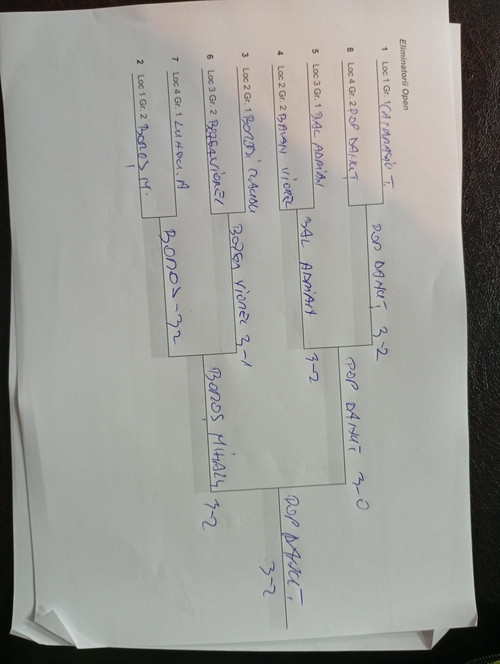 Eliminatorii Open
1 Loc 1 Gr. 1
8 Loc 4 Gr. 2 POP DANUT
5 Loc 3 Gr. 1 BAL ADRIAN
4 Loc 2 Gr. 2 VIOREL
3 Loc 2 Gr. 1
6 Loc 3 Gr. 2 VIOREL
7 Loc 4 Gr. 1
2 Loc 1 Gr. 2 BOROS M.
POP DANUT 3-2
BAL ADRIAN 3-2
VIOREL 3-1
BOROS - 3-2
POP DANUT 3-0
BOROȘ MIHALY 3-2
POP DANUT 3-2